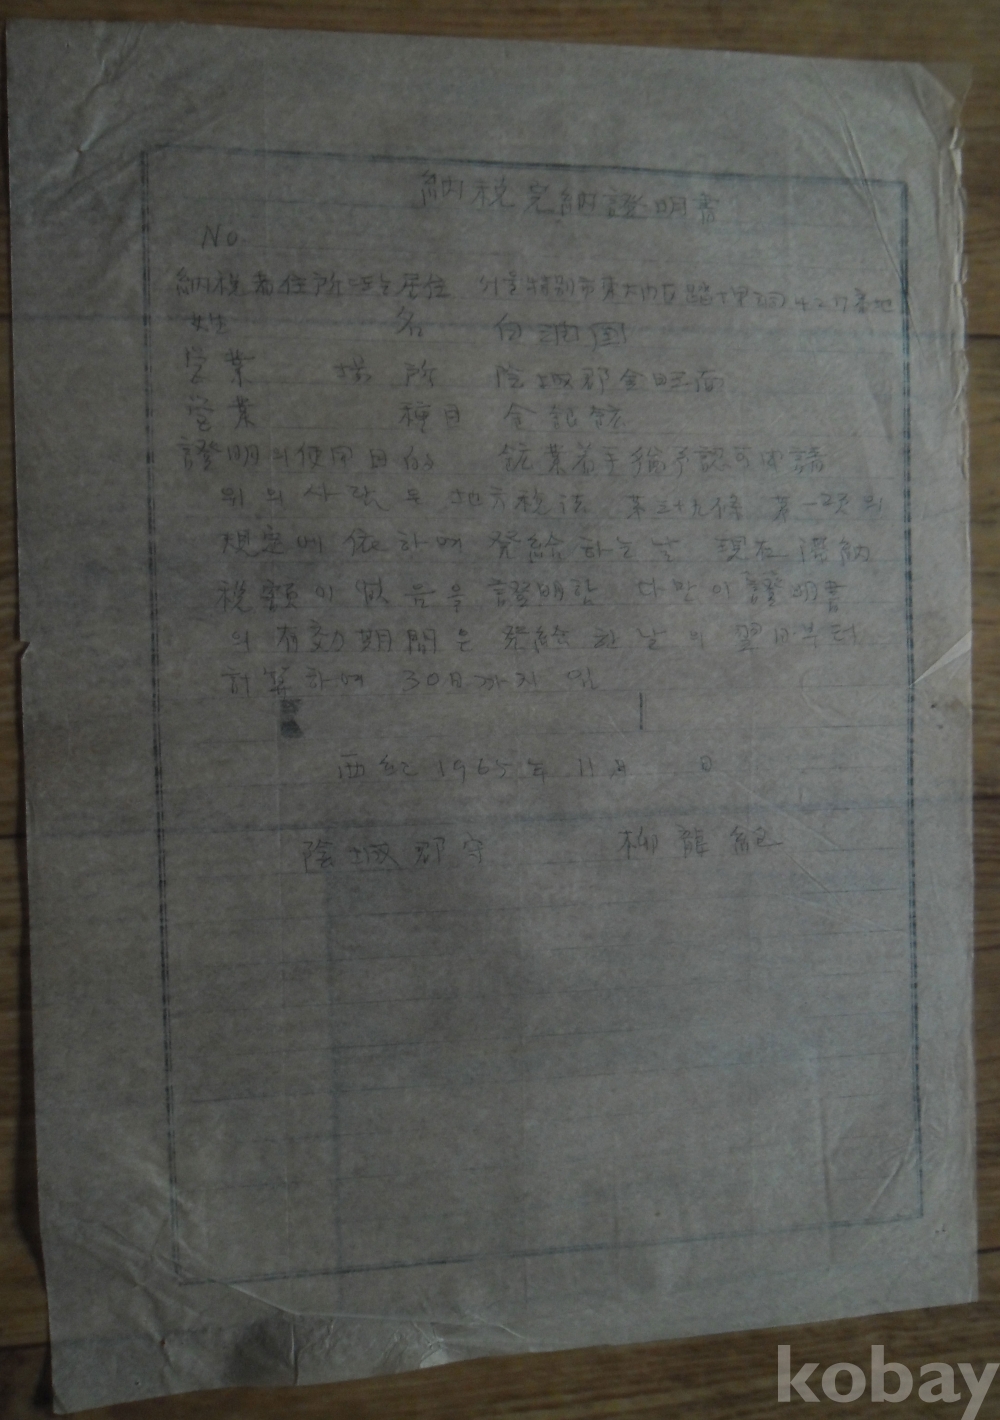 納稅完納證明書
No
納稅者住所또는居住 서울特別市東大門區踏十里洞 427番地
姓 名 白
営業 場所 陰城郡金旺面
営業 種目 金銀鉱
證明의使用目的 鉱業着手猶予認可申請
위의 사람은 地方稅法 第三十九條 第一項의
規定에 依하여 發給하는 날 現在 滯納
稅額이 없음을 證明함 다만이 證明書
의 有効期間은 發給한 날의 翌日부터
計算하여 30日까지임
西紀 1965年 11月 日
陰城郡守 柳龍
kobay